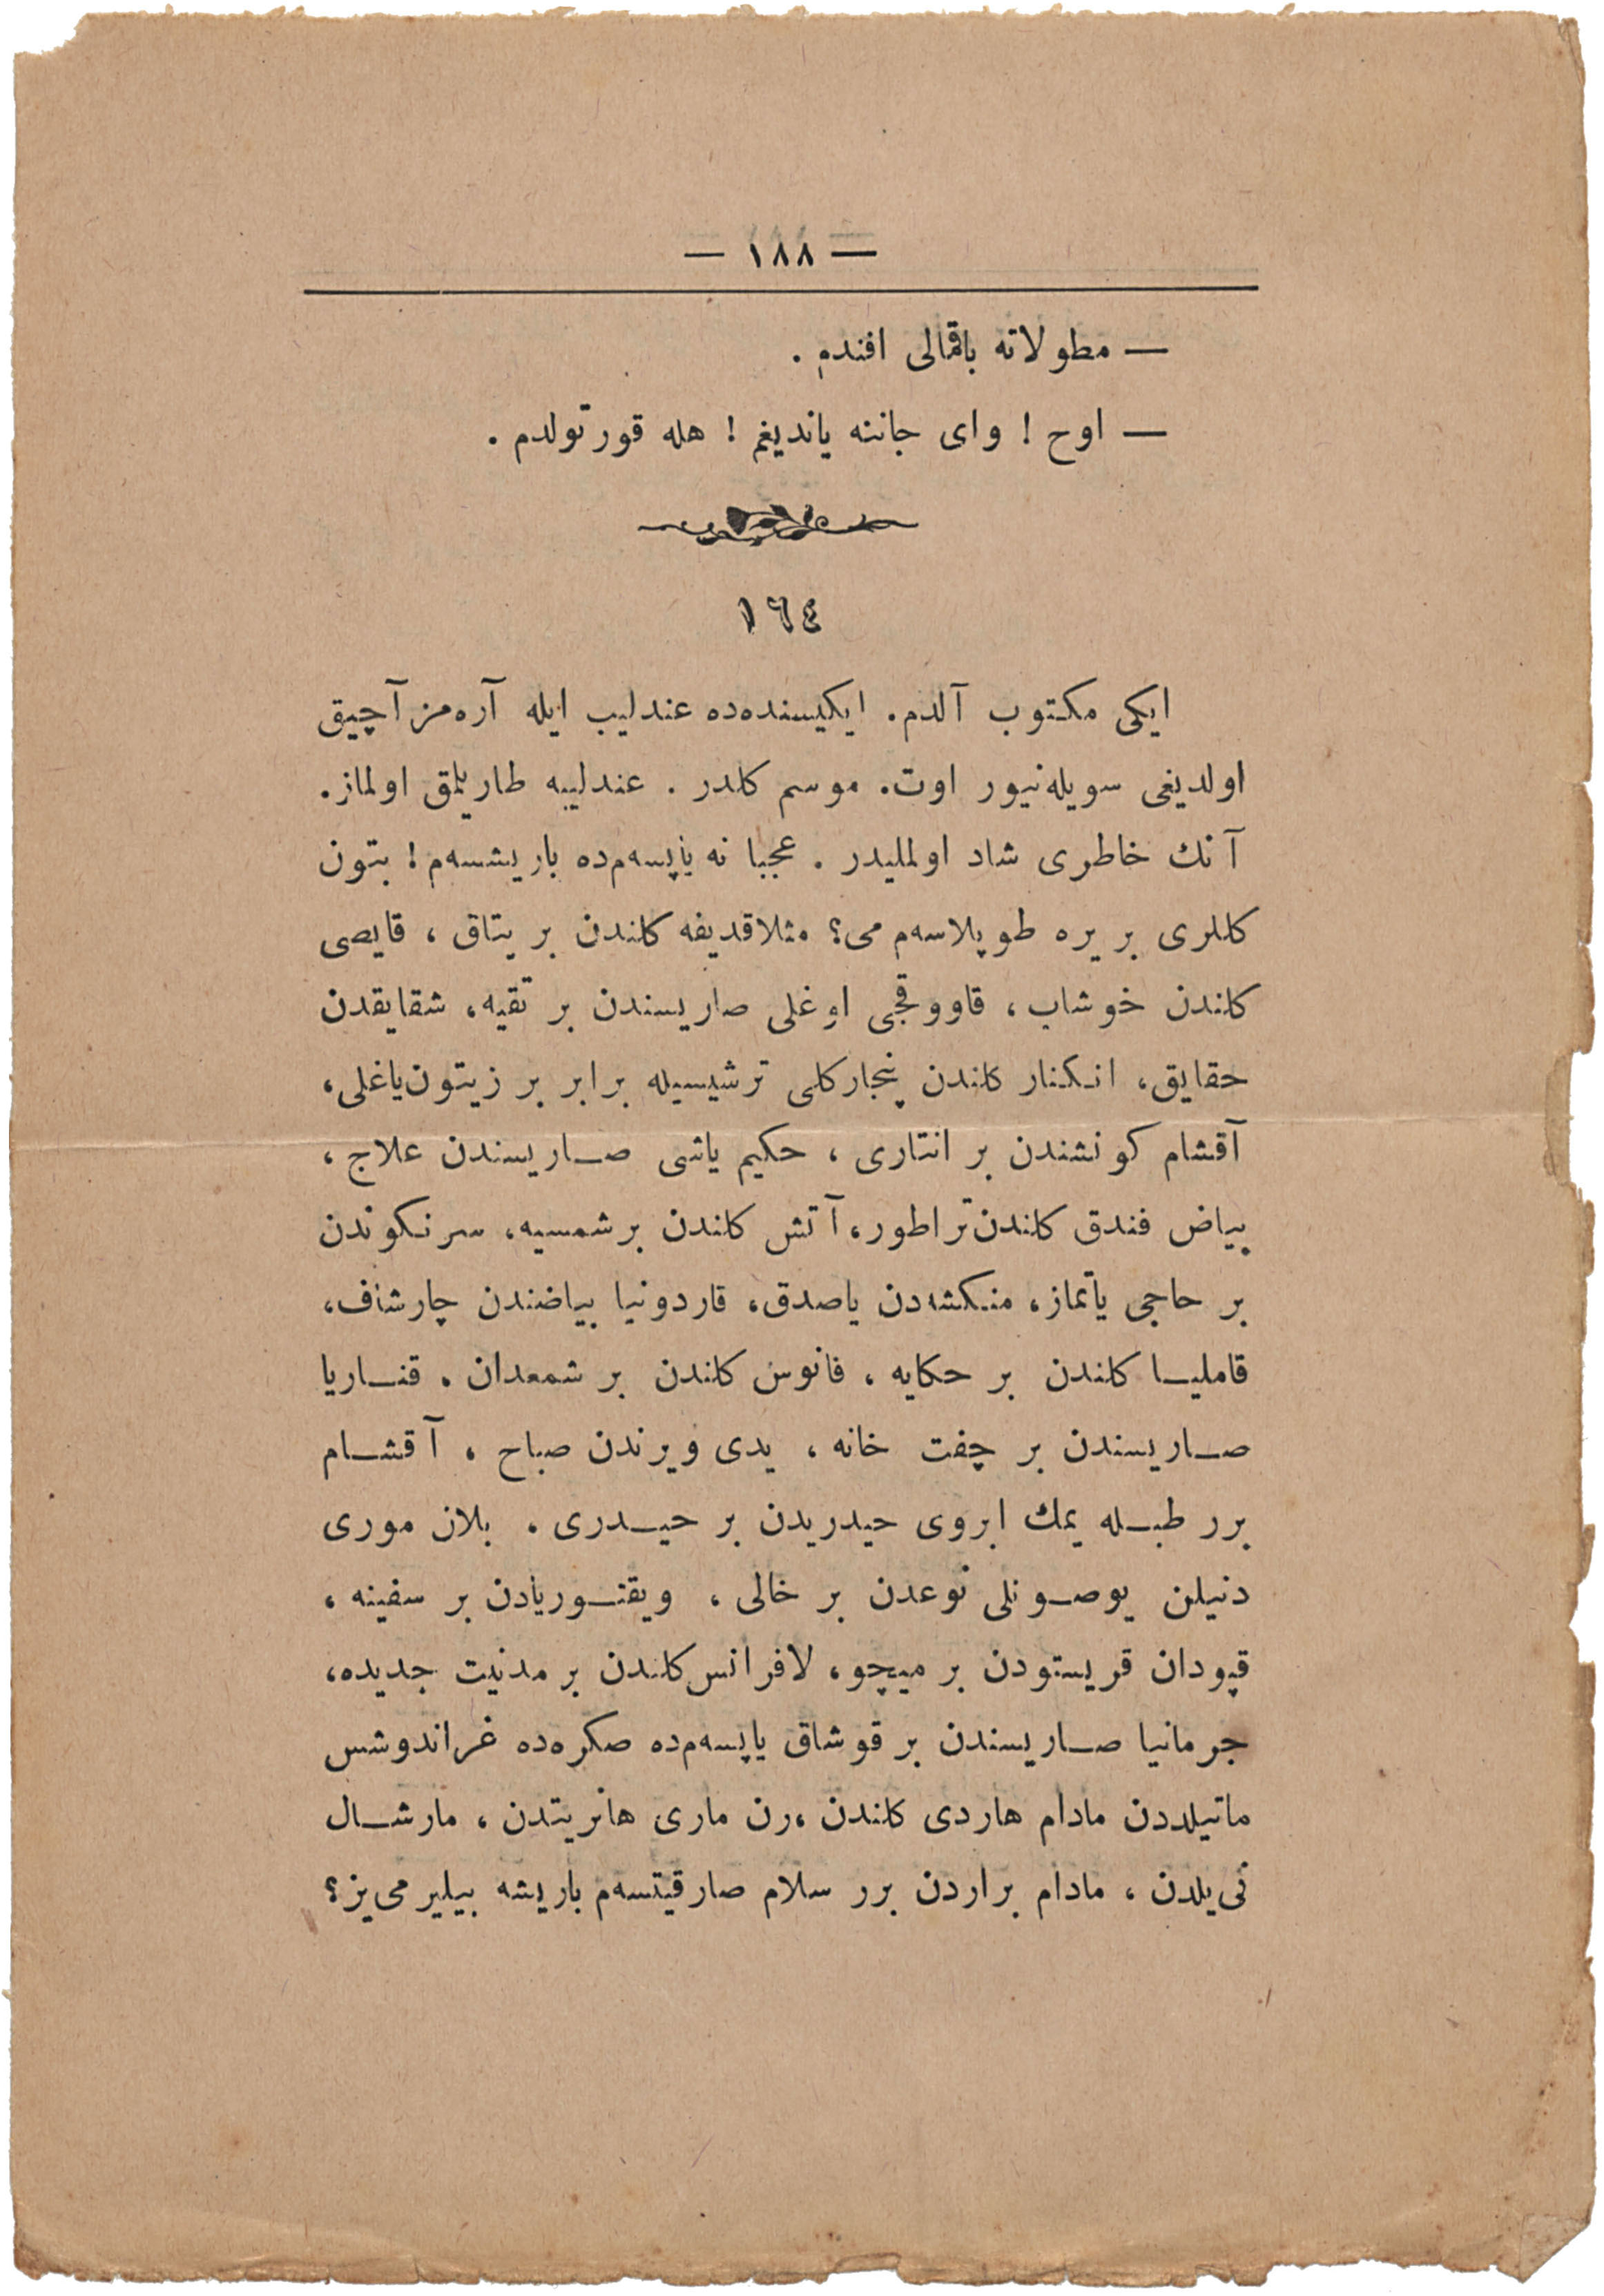 — ١٨٨ —
— مطولاته باقمالی افندم .
— اوح ! وای جاننه یاندیغم ! هله قورتولدم .
١٦٤
ایکی مکتوب آلدم. ایکیسنده‌ده عندلیب ایله آره‌مز آچیق
اولدیغی سویله‌نیور اوت. موسم کلدر . عندلیبه طاریلمق اولماز.
آنك خاطری شاد اولملیدر . عجبا نه یاپسه‌م‌ده باریشسه‌م ! بتون
کللری بر یره طوپلاسه‌م می؟ مثلا قدیفه کلندن بر یتاق ، قایصی
کلندن خوشاب ، قاووقجی اوغلی صاریسندن بر تقیه، شقایقدن
حقایق، انکنار کلندن پنجارکلی ترشیسیله برابر بر زیتون‌یاغلی،
آقشام کونشندن بر انتاری ، حکیم یاشی صاریسندن علاج ،
بیاض فندق کلندن تراطور، آتش کلندن بر شمسیه، سرنکوندن
بر حاجی یاتماز، منکشه‌دن یاصدق، قاردونیا بیاضندن چارشاف،
قاملیا کلندن بر حکایه ، فانوس کلندن بر شمعدان . قناریا
صاریسندن بر چفت خانه ، یدی ویرندن صباح ، آقشام
برر طبله یمك ابروی حیدریدن بر حیدری . بلان موری
دنیلن یوصونلی نوعدن بر خالی ، ویقتوریادن بر سفینه ،
قپودان قریستودن بر میچو، لافرانس کلندن بر مدنیت جدیده،
جرمانیا صاریسندن بر قوشاق یاپسه‌م‌ده صکره‌ده غراندوشس
ماتیلددن مادام هاردی کلندن ،رن ماری هانریتدن ، مارشال
نی‌یلدن ، مادام براردن برر سلام صارقیتسه‌م باریشه بیلیر می‌یز؟